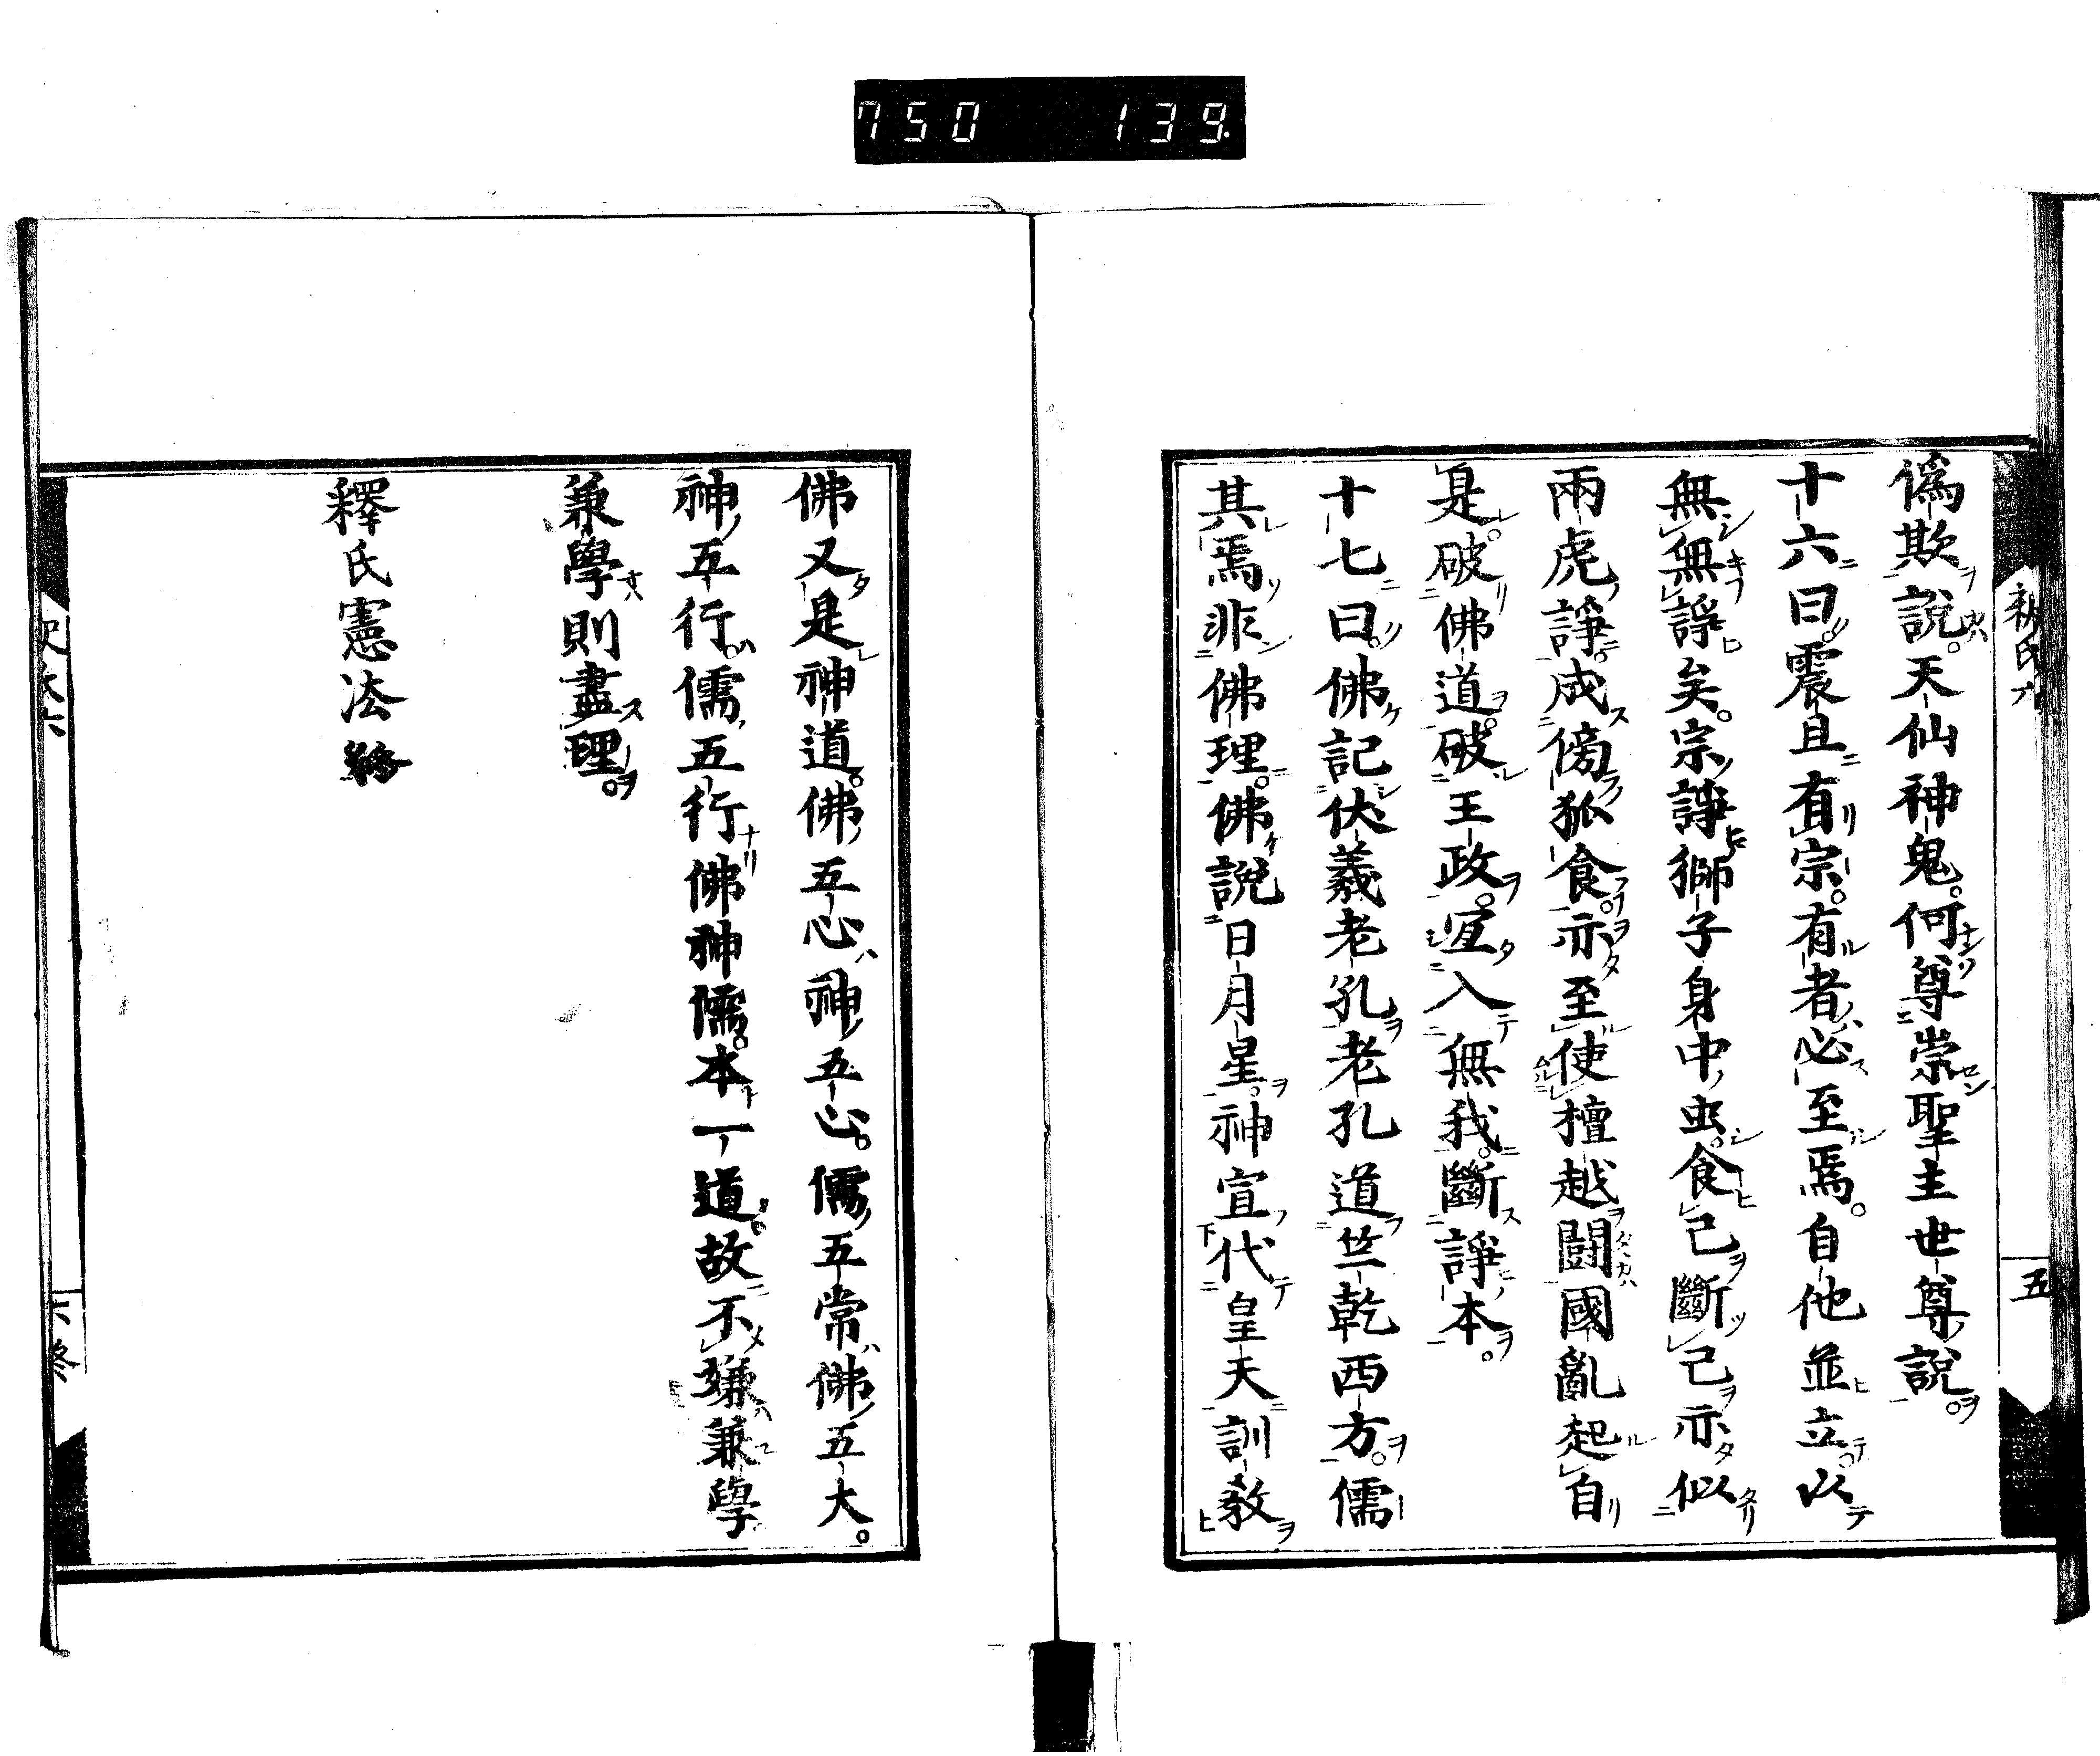 750 139
偽欺說。天仙神鬼。何尊崇聖主世尊說。
十六曰。震旦有宗。有者必至焉。自他並立。以
無無諍矣。宗諍獅子身中虫。食己斷己亦似
兩虎諍。成傍狐食。亦至使檀越闘國亂起自
是。破佛道。破王政。宜入無我。斷諍本。
十七曰。佛記伏羲老孔老孔道竺乾西方。儒
其焉非佛理。佛說日月星。神宣代皇天訓敎
五
佛又是神道。佛五心神五心。儒五常佛五大。
神五行。儒五行佛神儒。本一道。故不嫌兼學
兼學則盡理。
釋氏憲法終